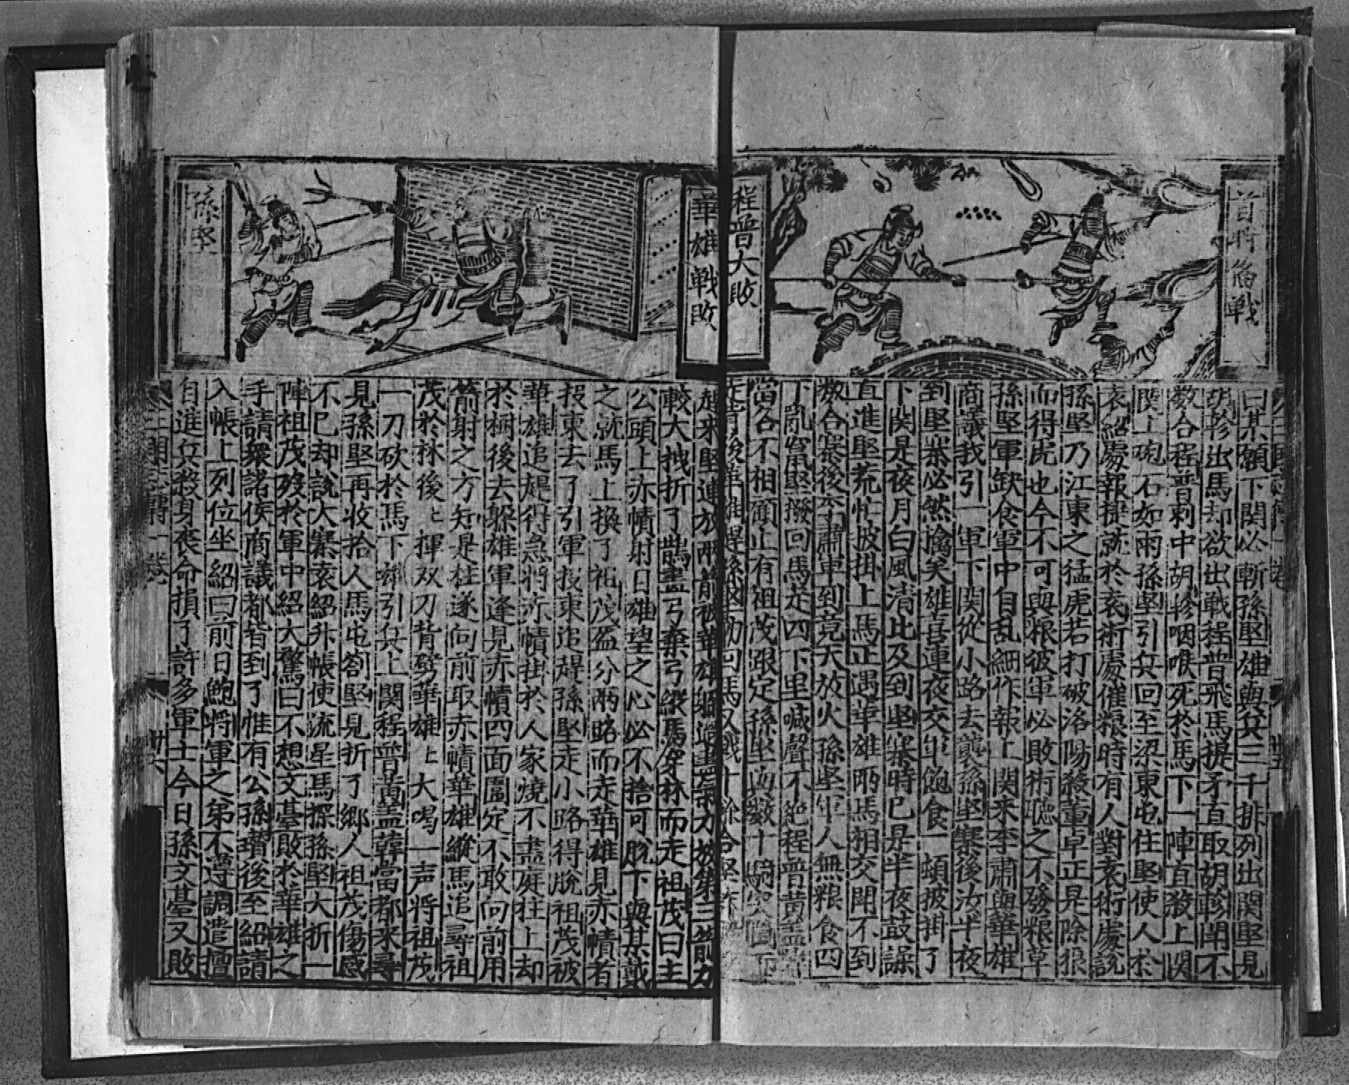 首將 戰
程普大敗
曰某願下関必斬孫堅雄與兵三千排列出関堅見
胡軫出馬却欲出戰程普飛馬提矛直取胡軫鬪不
数合程普刺中胡軫咽喉死於馬下一陣直殺上関
関上砲石如雨孫堅引兵回至梁東屯住堅使人於
袁紹處報捷就於袁術處催粮時有人對袁術處說
孫堅乃江東之猛虎若打破洛陽殺董卓正是除狼
而得虎也今不可與粮彼軍必敗術聽之不發粮草
孫堅軍缺食軍中自乱細作報上関來李肅與華雄
商議我引一軍下関從小路去襲孫堅寨後汝半夜
到堅寨必然擒矣雄喜連夜交軍飽食一頓披掛了
下関是夜月白風清比及到堅寨時已是半夜鼓譟
直進堅荒忙披掛上馬正遇華雄兩馬相交閗不到
数合寨後李肅軍到竟天放火孫堅軍人無粮食四
下乱竄堅撥回馬走四下里喊聲不絶程普黄盖
當各不相顧止有祖茂跟定孫堅與數十騎突圍而
走背後華雄趕孫堅
華雄戰敗
孫堅
趕來堅連放兩箭被華雄躱過盡氣力放第三箭力
較大拽折了鵲畫弓棄弓縱馬穿林而走祖茂曰主
公頭上赤幘射日雄望之心必不捨可脫下與某戴
之就馬上換了祖茂盔分兩路而走華雄見赤幘者
投東去了引軍投東追趕孫堅走小路得脫祖茂被
華雄追趕得急將赤幘掛於人家燒不盡庭柱上却
於樹後去躲雄軍逢見赤幘四面圍定不敢向前用
箭射之方知是柱遂向前取赤幘華雄縱馬追尋祖
茂於林後上揮双刀背劈華雄上大喝一声將祖茂
一刀砍於馬下雄引兵上関程普黄盖韓當都來尋
見孫堅再收拾人馬屯劄堅見折了鄉人祖茂傷感
不已却說大寨袁紹升帳使流星馬探孫堅大折一
陣祖茂歿於軍中紹大驚曰不想文臺敗於華雄之
手請衆諸侯商議都皆到了惟有公孫瓚後至紹請
入帳上列位坐紹曰前日鮑將軍之弟不遵調遣擅
自進兵殺身喪命損了許多軍士今日孫文臺又敗